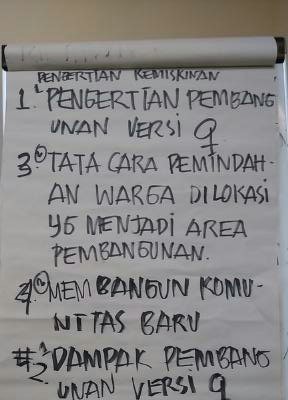 PENGERTIAN KEMISKINAN
1. PENGERTIAN PEMBANG
UNAN VERSI q
3. TATA CARA PEMINDAH-
AN WARGA DILOKASI
YG MENJADI AREA
PEMBANGUNAN.
4. MEMBANGUN KOMU-
NITAS BARU
2. DAMPAK PEMBANG
UNAN VERSI q